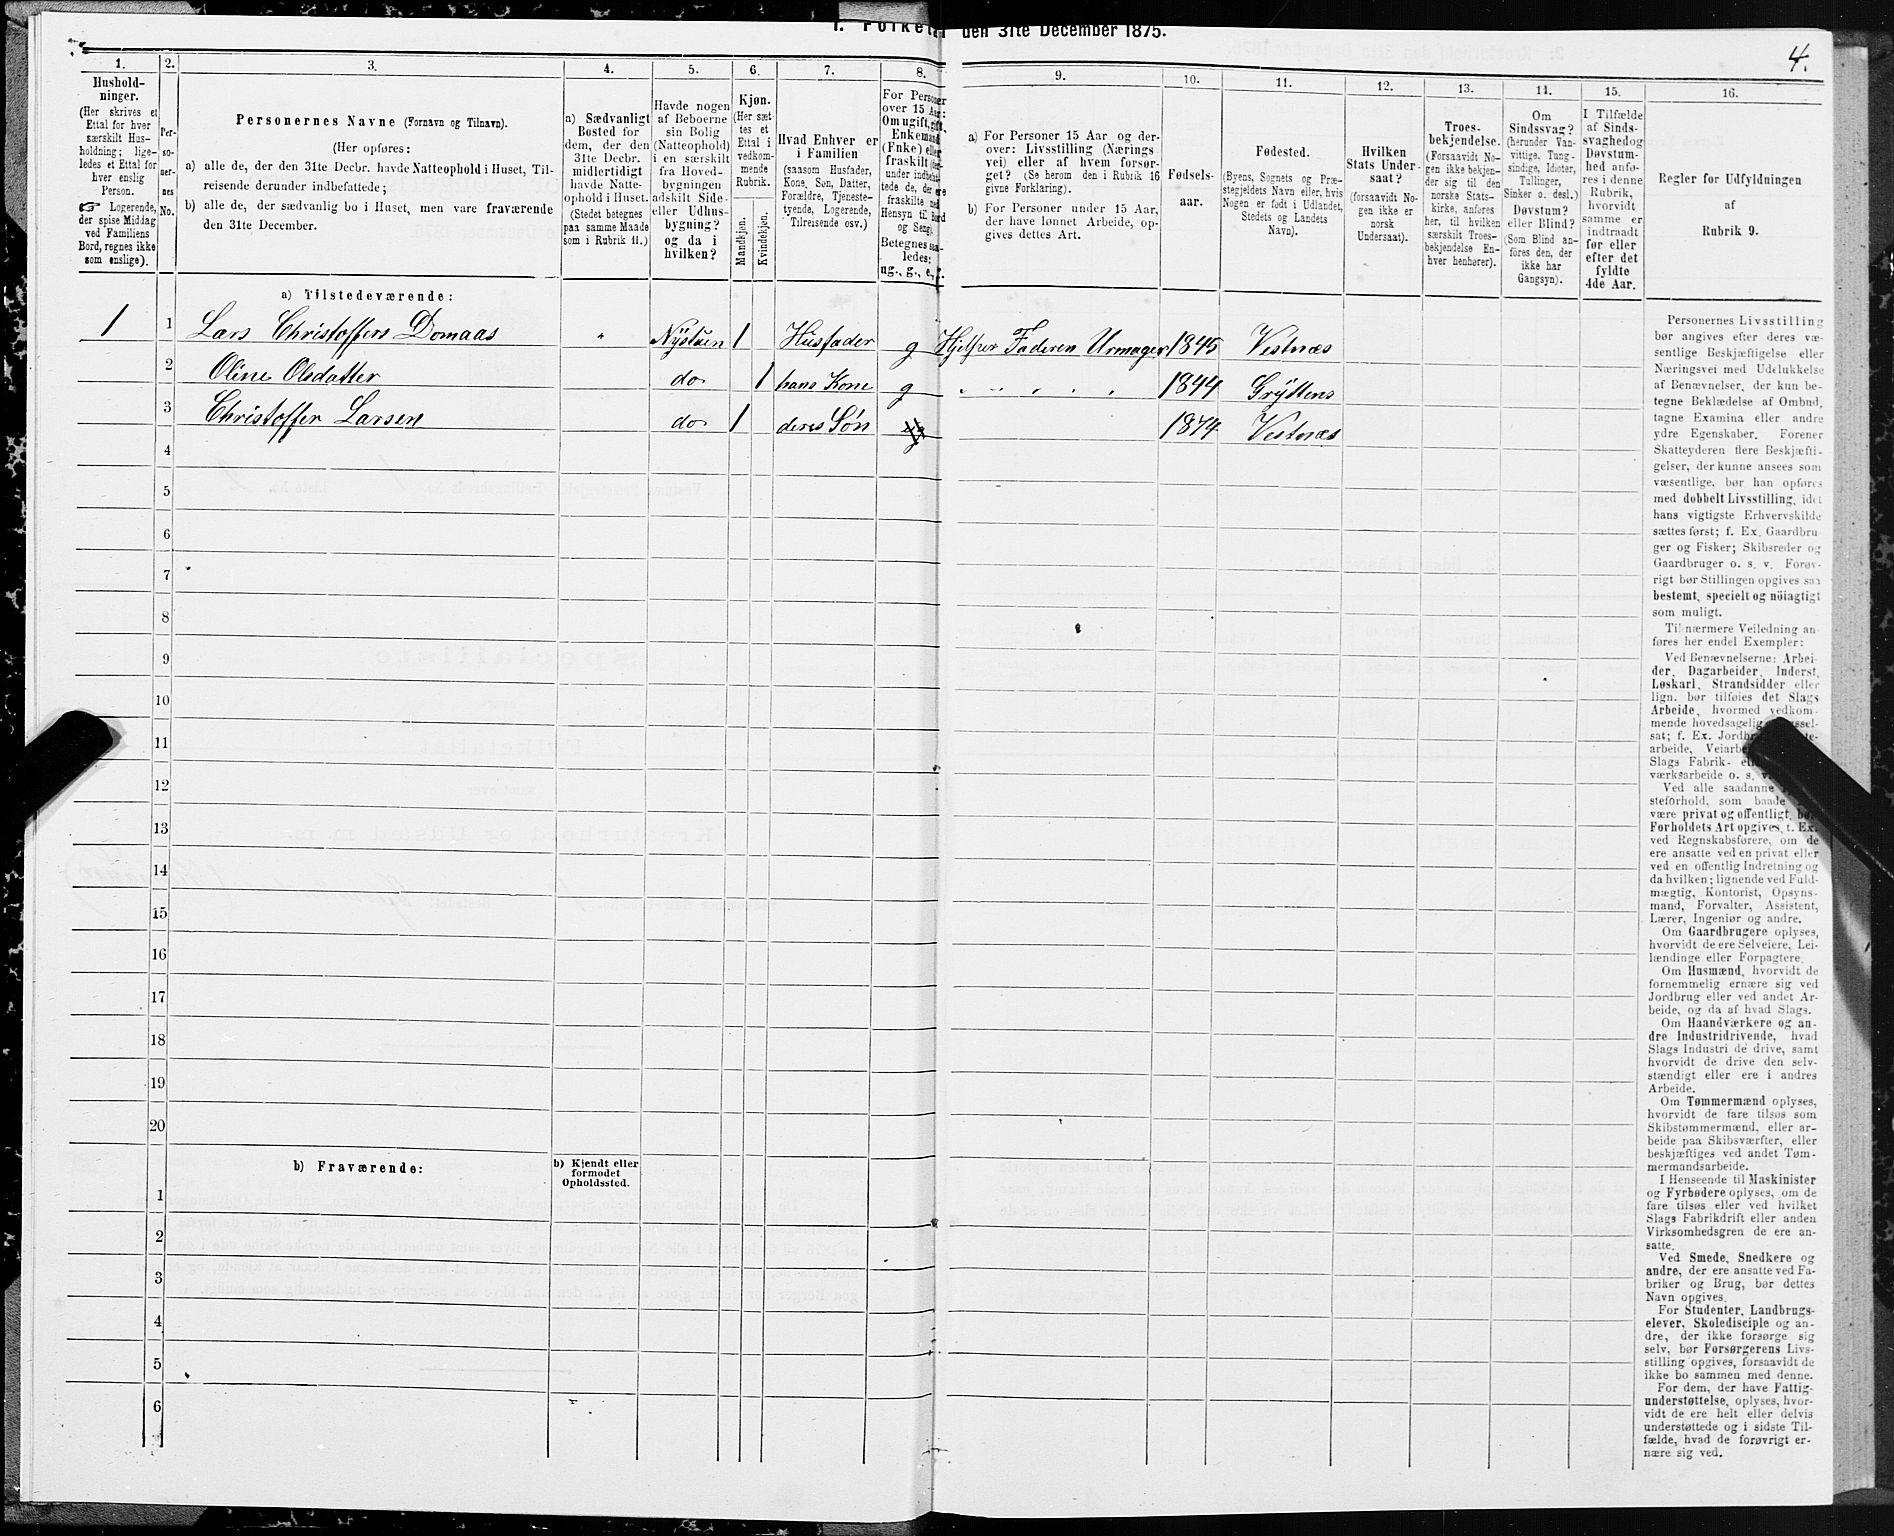 I. Folketal den 31te December 1875.
4.
1.
2.
3.
4.
5.
6.
7.
8.
9.
10.
11.
12.
13.
14.
15.
16.
Hushold-
ninger.
(Her skrives et
Ettal for hver
særskilt Hus-
holdning; lige-
ledes et Ettal for
hver enslig
Person.
☞ Logerende,
der spise Middag
ved Familiens
Bord, regnes ikke
som enslige).
Per-
so-
ner-
nes
No.
Personernes Navne (Fornavn og Tilnavn).
(Her opføres:
a) alle de, der den 31te Decbr. havde Natteophold i Huset, Til-
reisende derunder indbefattede;
b) alle de, der sædvanlig bo i Huset, men vare fraværende
den 31te December.
a) Sædvanligt
Bosted for
dem, der den
31te Decbr.
midlertidigt
havde Natte-
ophold i Huset.
(Stedet betegnes
paa samme Maade
som i Rubrik 11.)
Havde nogen
af Beboerne
sin Bolig
(Natteophold)
i en særskilt
fra Hoved-
bygningen
adskilt Side-
eller Udhus-
bygning?
og da i
hvilken?
Kjøn.
(Her sæt-
tes et
Ettal i
vedkom-
mende
Rubrik.
Mandkjøn.
Kvindekjøn.
Hvad Enhver er
i Familien
(saasom Husfader,
Kone, Søn, Datter,
Forældre, Tjeneste-
tyende, Logerende,
Tilreisende osv.)
For Personer
over 15 Aar:
Om ugift, gift,
Enkemand
(Fnke) eller
fraskilt
under indbefat-
tede de, der ere
fraskilte med
Hensyn til Bord
og Seng).
Betegnes saa-
ledes:
ug., g., e.,
a) For Personer 15 Aar og der-
over: Livsstilling (Nærings
vei) eller af hvem forsør-
get? (Se herom den i Rubrik 16
givne Forklaring).
b) For Personer under 15 Aar,
der have lønnet Arbeide, op-
gives dettes Art.
Fødsels-
aar.
Fødested.
(Byens, Sognets og Præ-
stegjeldets Navn eller, hvis
Nogen er født i Udlandet,
Stedets og Landets
Navn).
Hvilken
Stats Under-
saat?
(forsaavidt No-
gen ikke er
norsk
Undersaat).
Troes-
bekjendelse.
(Forsaavidt No-
gen ikke bekjen-
der sig til den
norske Stats-
kirke, anføres
her, til hvilken
særskilt Troes-
bekjendelse En-
hver henhører).
Om
Sindssvag?
(herunder Van-
vittige, Tung-
sindige, Idioter,
Tullinger,
Sinker o. desl.)
Døvstum?
eller Blind?
(Som Blind an-
føres den, der
ikke har
Gangsyn).
I Tilfælde
af Sinds-
svaghedog
Døvstum-
hed anfø-
res i denne
Rubrik,
hvorvidt
samme er
indtraadt
før eller
efter det
fyldte
4de Aar.
Regler for Udfyldningen
af
Rubrik 9.
a) Tilstedeværende:
1 1 Lars Christoffers Domaas " Nystuen 1 Husfader g Hjelper Faderen Urmager 1845 Vestnæs
2 Oline Olsdatter do 1 hans Kone g " " " " " 1844 Gryttens
3 Christoffer Larsen do 1 deres Søn ug 1874 Vestnæs
4
5
6
7
8
9
10
11
12
13
14
15
16
17
18
19
20
b) Fraværende:
b) Kjendt eller
formodet
Opholdssted.
1
2
3
4
5
6
Personernes Livsstilling
bør angives efter deres væ-
sentlige Beskjæftigelse eller
Næringsvei med Udelukkelse
af Benævnelser, der kun be-
tegne Beklædelse af Ombud,
tagne Examina eller andre
ydre Egenskaber. Forener
Skatteyderen flere Beskjæfti-
gelser, der kunne ansees som
væsentlige, bør han opføres
med dobbelt Livsstilling, idet
hans vigtigste Erhvervskilde
sættes først; f. Ex. Gaardbru-
ger og Fisker; Skibsreder og
Gaardbruger o. s. v. Forøv-
rigt bør Stillingen opgives saa
bestemt, specielt og nöiagtigt
som muligt.
Til nærmere Veiledning an-
føres her endel Exempler:
Ved Benævnelserne: Arbei-
der, Dagarbeider, Inderst,
Løskarl, Strandsidder eller
lign. bør tilføies det Slags
Arbeide, hvormed vedkom-
mende hovedsagelig
sat; f. Ex.
arbeide,
Slags Fabrik-
værksarbeide o. s. v.
Ved alle saadanne
steforhold, som baade
være privat og offentligt, bør
Forholdets Art opgives, f. Ex.
ved Regnskabsførere, om de
ere ansatte ved en privat eller
ved en offentlig Indretning og
da hvilken; lignende ved Fuld-
mægtig, Kontorist, Opsyns-
mand, Forvalter, Assistent,
Lærer, Ingeniør og andre.
Om Gaardbrugere oplyses,
hvorvidt de ere Selveiere, Lei-
lændinge eller Forpagtere.
Om Husmænd, hvorvidt de
fornemmelig ernære sig ved
Jordbrug eller ved andet Ar-
beide, og da af hvad Slags.
Om Haandværkere og an-
dre Industridrivende, hvad
Slags Industri de drive, samt
hvorvidt de drive den selv-
stændigt eller ere i andres
Arbeide.
Om Tømmermænd oplyses,
hvorvidt de fare tilsøs som
Skibstømmermænd, eller ar-
beide paa Skibsværfter, eller
beskjæftiges ved andet Tøm-
mermandsarbeide.
I Henseende til Maskinister
og Fyrbødere oplyses, om de
fare tilsøs eller ved hvilket
Slags Fabrikdrift eller anden
Virksomhedsgren de ere an-
satte.
Ved Smede, Snedkere og
andre, der ere ansatte ved Fa-
briker og Brug, bør dettes
Navn opgives.
For Studenter, Landbrugs-
elever, Skoledisciple og an-
dre, der ikke forsørge sig
selv, bør Forsørgerens Livs-
stilling opgives, forsaavidt de
ikke bo sammen med denne.
For dem, der have Fattig-
understøttelse, oplyses, hvor-
vidt de ere helt eller delvis
understøttede og i sidste Til-
fælde, hvad de forøvrigt er-
nære sig ved.